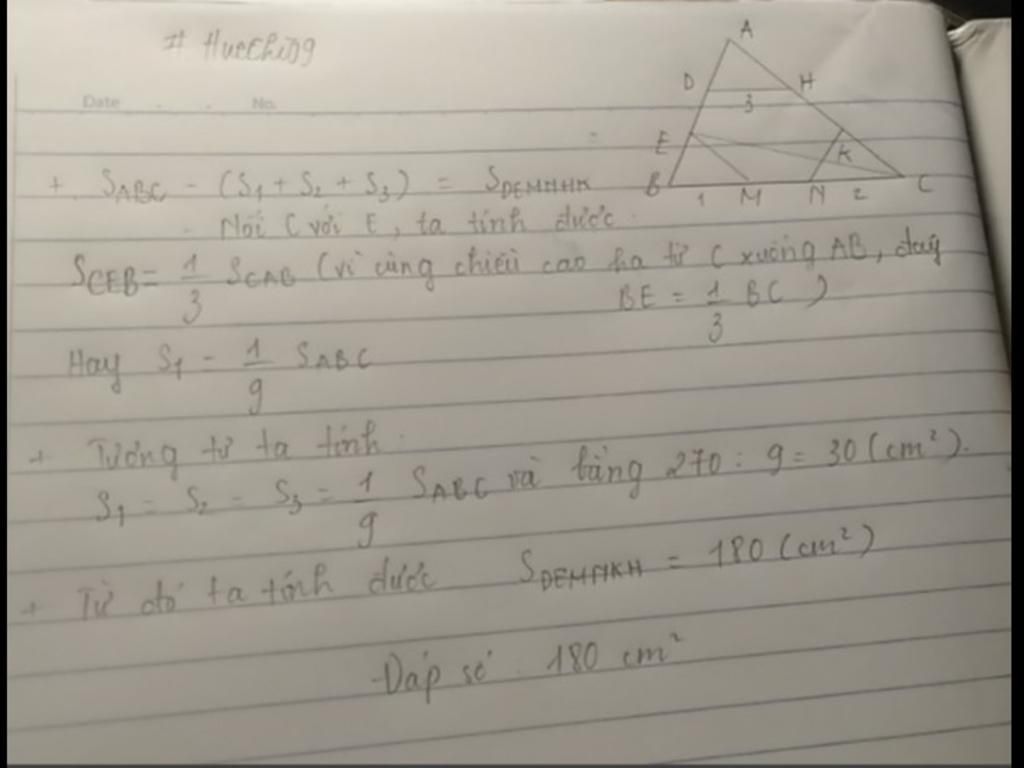 # Huechi09
Date No.
A
D H
3
E
K
B 1 M N 2 C
+ SABC - (S1 + S2 + S3) = SDEMNHK
- Nối C với E, ta tính được.
SCEB = 1/3 SCAB (vì cùng chiều cao hạ từ C xuống AB, đáy
BE = 1/3 BC)
Hay S1 = 1/9 SABC
+ Tương tự ta tính
S1 = S2 = S3 = 1/9 SABC và bằng 270 : 9 = 30 (cm²).
+ Từ đó ta tính được SDEMNKH = 180 (cm²)
Đáp số. 180 cm²